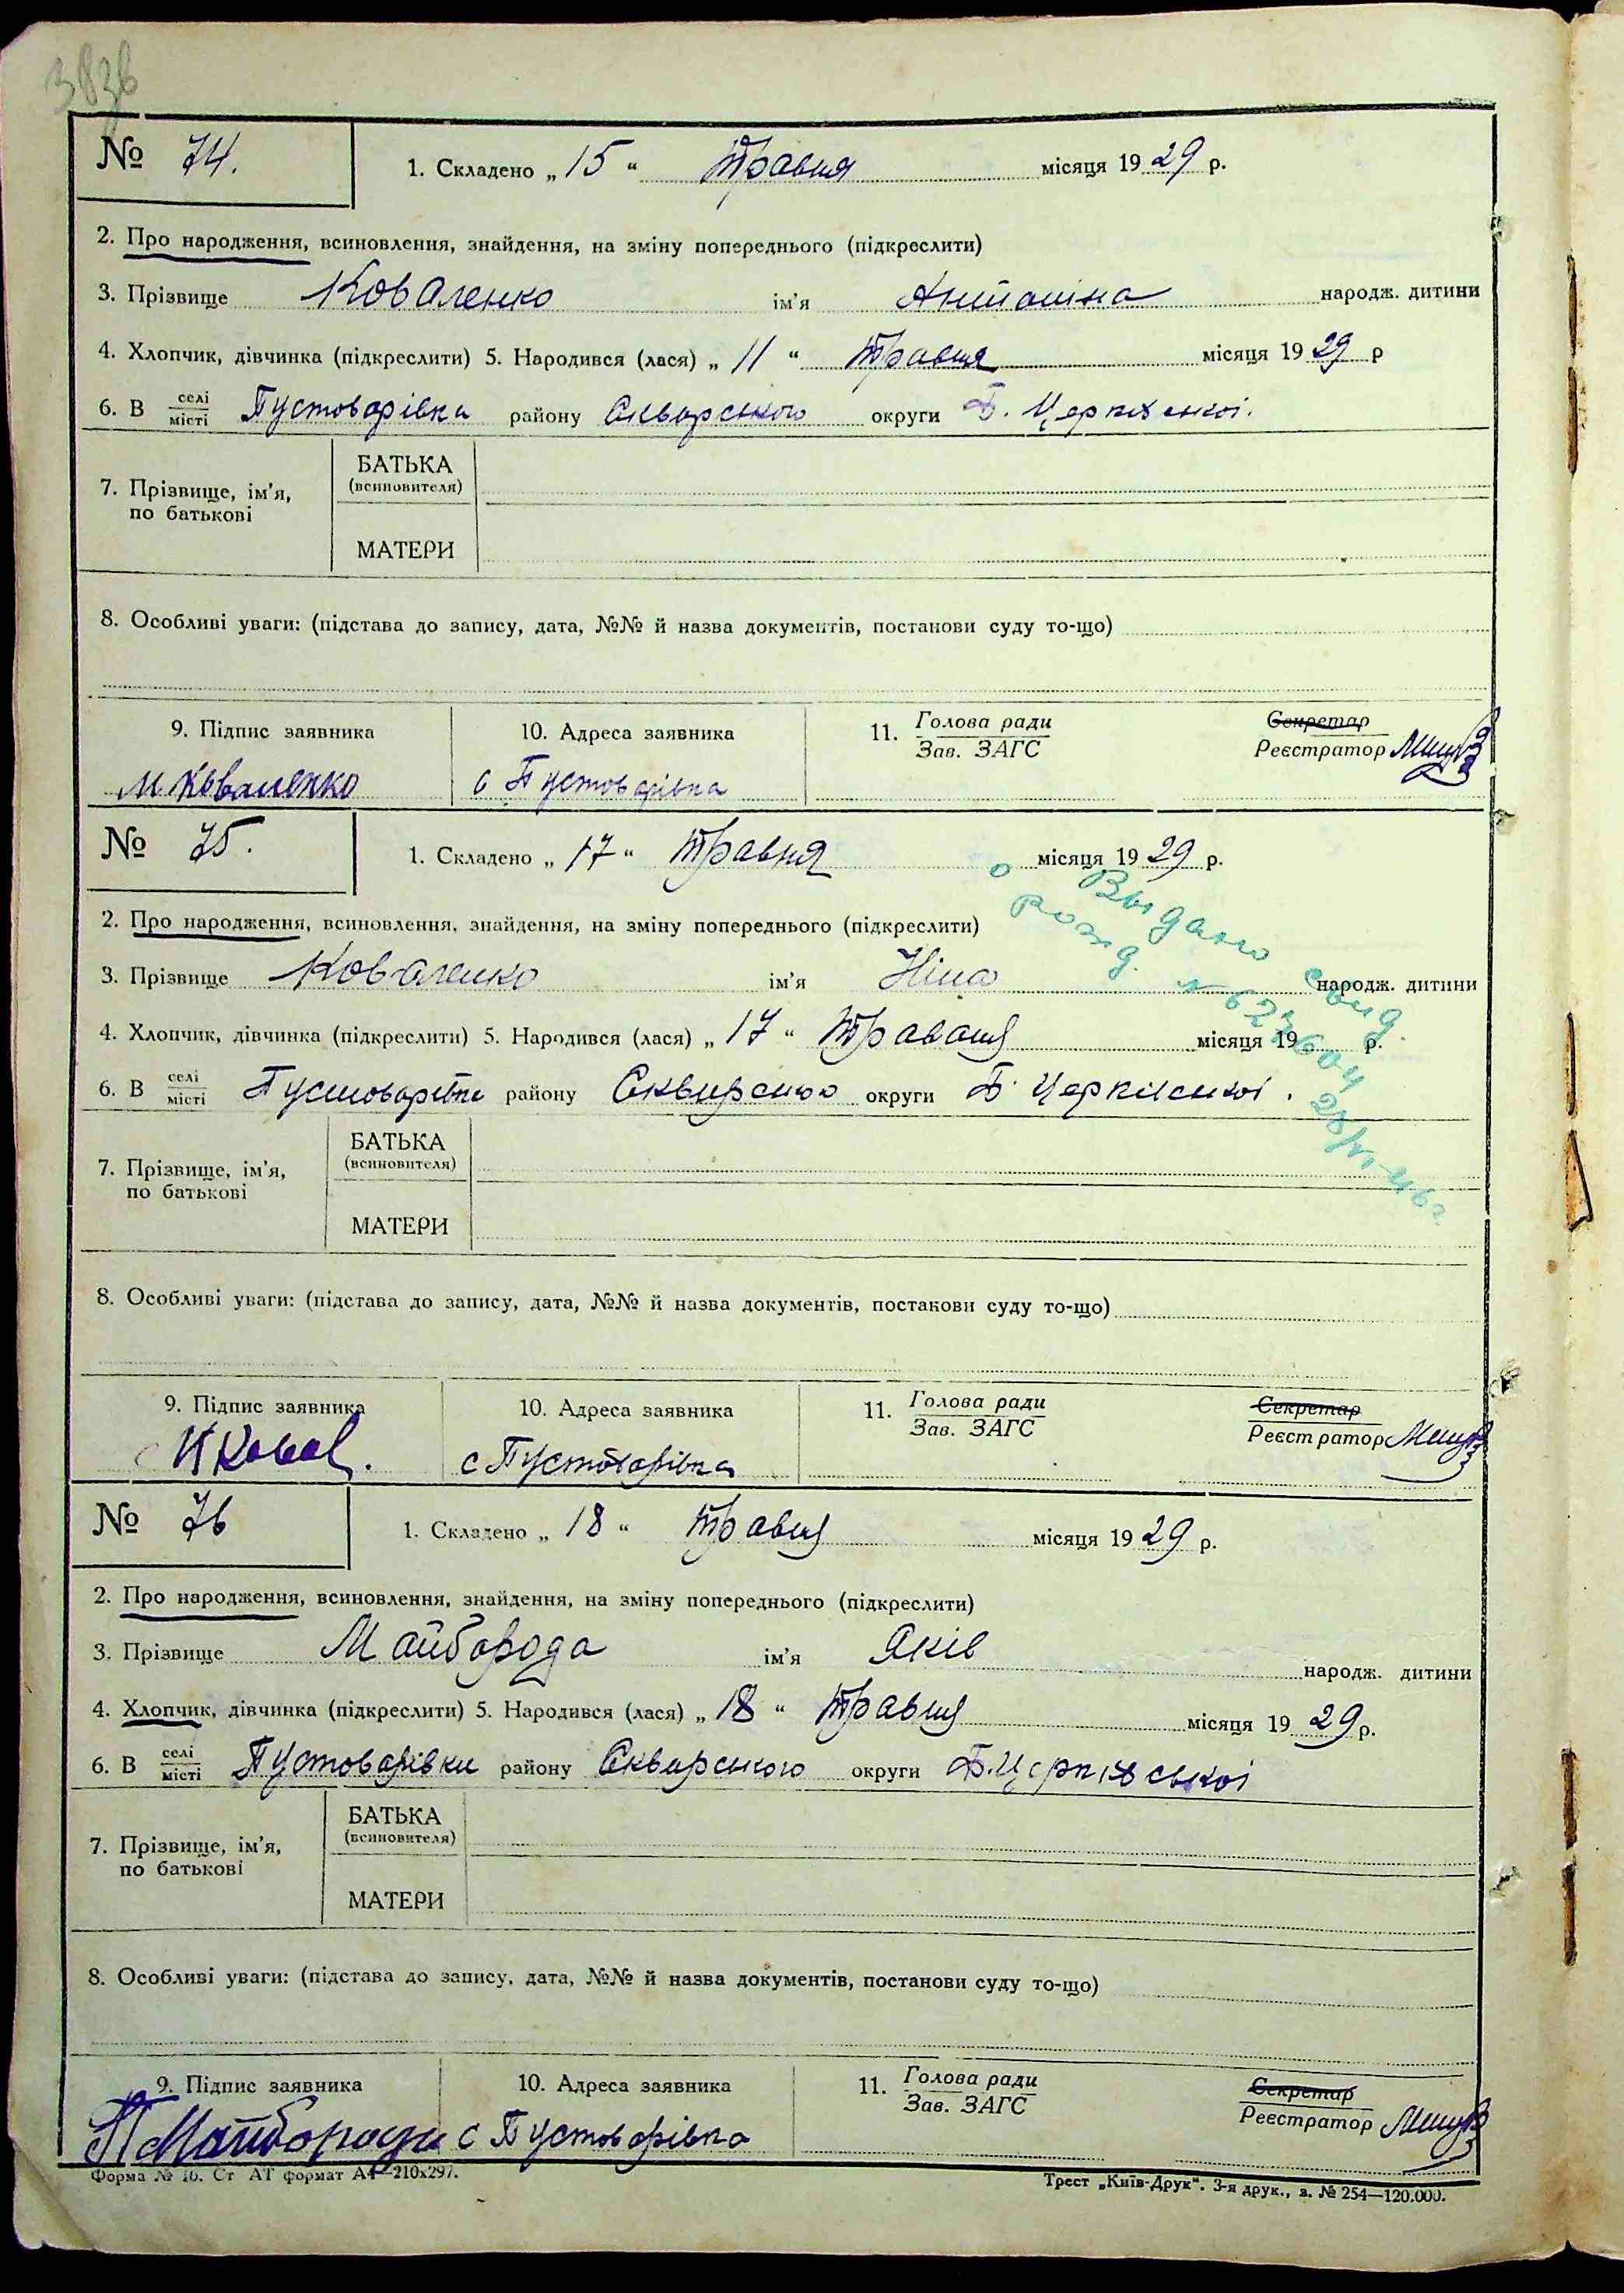 № 74.
1. Складено „ 15 “ Травня місяця 1929 р.
2. Про народження, всиновлення, знайдення, на зміну попереднього (підкреслити)
3. Прізвище Коваленко ім'я Антоніна народж. дитини
4. Хлопчик, дівчинка (підкреслити) 5. Народився (лася) „ 11 “ Травня місяця 1929 р
6. В селі/місті Пустоварівка району Сквирського округи Б. Церківської.
7. Прізвище, ім'я, по батькові
БАТЬКА
(всиновителя)
МАТЕРИ
8. Особливі уваги: (підстава до запису, дата, №№ й назва документів, постанови суду то-що)
9. Підпис заявника 10. Адреса заявника 11. Голова ради / Зав. ЗАГС Секретар / Реєстратор
М Коваленко с Пустоварівка
№ 75.
1. Складено „ 17 “ Травня місяця 1929 р.
Выдано свид.
о рожд. №
2. Про народження, всиновлення, знайдення, на зміну попереднього (підкреслити)
3. Прізвище Коваленко ім'я Ніна народж. дитини
4. Хлопчик, дівчинка (підкреслити) 5. Народився (лася) „ 17 “ Траваня місяця 19 р.
6. В селі/місті Пустоварівка району Сквирського округи Б. Церківської.
7. Прізвище, ім'я, по батькові
БАТЬКА
(всиновителя)
МАТЕРИ
8. Особливі уваги: (підстава до запису, дата, №№ й назва документів, постанови суду то-що)
9. Підпис заявника 10. Адреса заявника 11. Голова ради / Зав. ЗАГС Секретар / Реєстратор
с Пустоварівка
№ 76
1. Складено „ 18 “ Травня місяця 1929 р.
2. Про народження, всиновлення, знайдення, на зміну попереднього (підкреслити)
3. Прізвище Майборода ім'я Яків народж. дитини
4. Хлопчик, дівчинка (підкреслити) 5. Народився (лася) „ 18 “ Травня місяця 1929 р.
6. В селі/місті Пустоварівки району Сквирського округи Б. Церківської
7. Прізвище, ім'я, по батькові
БАТЬКА
(всиновителя)
МАТЕРИ
8. Особливі уваги: (підстава до запису, дата, №№ й назва документів, постанови суду то-що)
9. Підпис заявника 10. Адреса заявника 11. Голова ради / Зав. ЗАГС Секретар / Реєстратор
Майборода с Пустоварівка
Форма № 16. Ст АТ формат А4—210x297.
Трест „Київ-Друк“. 3-я друк., з. № 254—120.000.